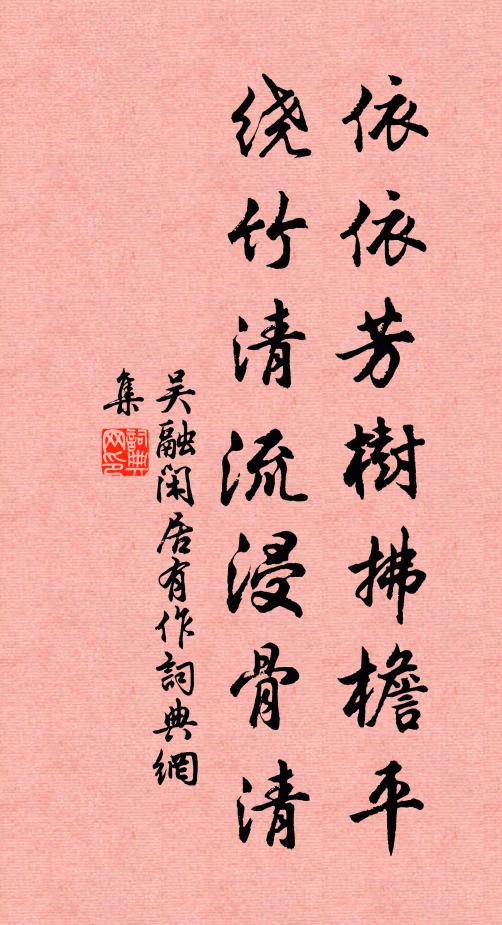 依依芳樹拂檐平
绕竹清流浸骨清
吴融闲居有作詞典網
集
詞典
网印